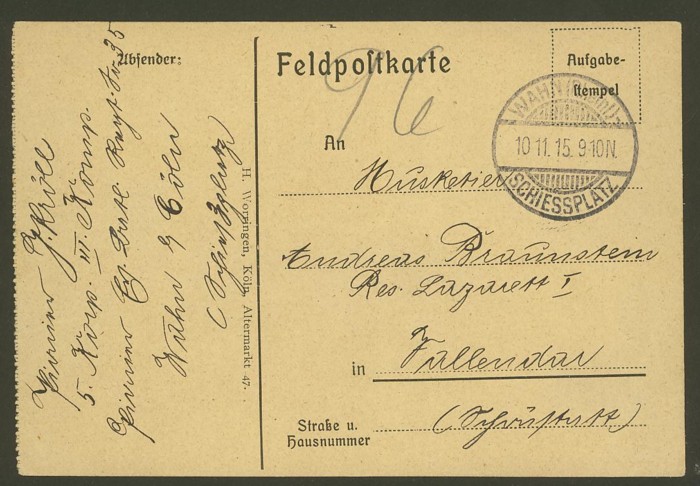 Absender:
Pionier J. Kröll
5. Korp. III. Komp.
Pionier Ers. Batl. Rgt. No 35
Wahn b/ Cöln
(Schießplatz)
H. Worringen, Köln, Altermarkt 47.
Feldpostkarte
96
Aufgabe-
stempel
WAHN (Rhein)
10 11. 15. 9-10N.
SCHIESSPLATZ
An
Musketier
Andreas Braunstein
Res. Lazarett I
in Vallendar
Straße u.
Hausnummer
(Schönstatt)